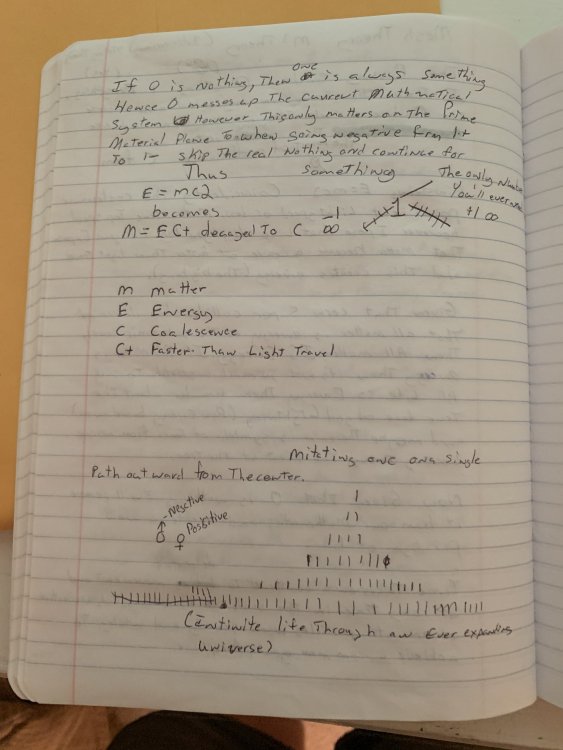 one
If 0 is nothing, Then is always something
Hence 0 messes up The current Mathmatical
System However This only matters on The Prime
Material Plane To when going negative from 1+
To 1- skip The real Nothing and continue for
Something
Thus
The only number
You'll ever need
E = mc2
becomes
+1 ∞
1
-1
M = E C+ decayed To C ∞
m matter
E Energy
C Coalescence
C+ Faster-Than Light Travel
one on a single
Path outward from The center.
-Negative
Positive
(Infinite life Through an Ever expanding
universe)